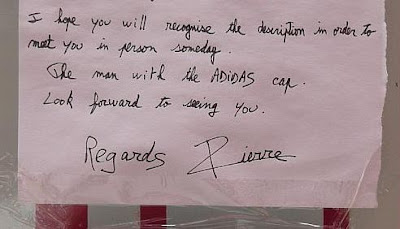 I hope you will recognise the description in order to
meet you in person someday.
The man with the ADiDAS cap.
Look forward to seeing you.
Regards Pierre